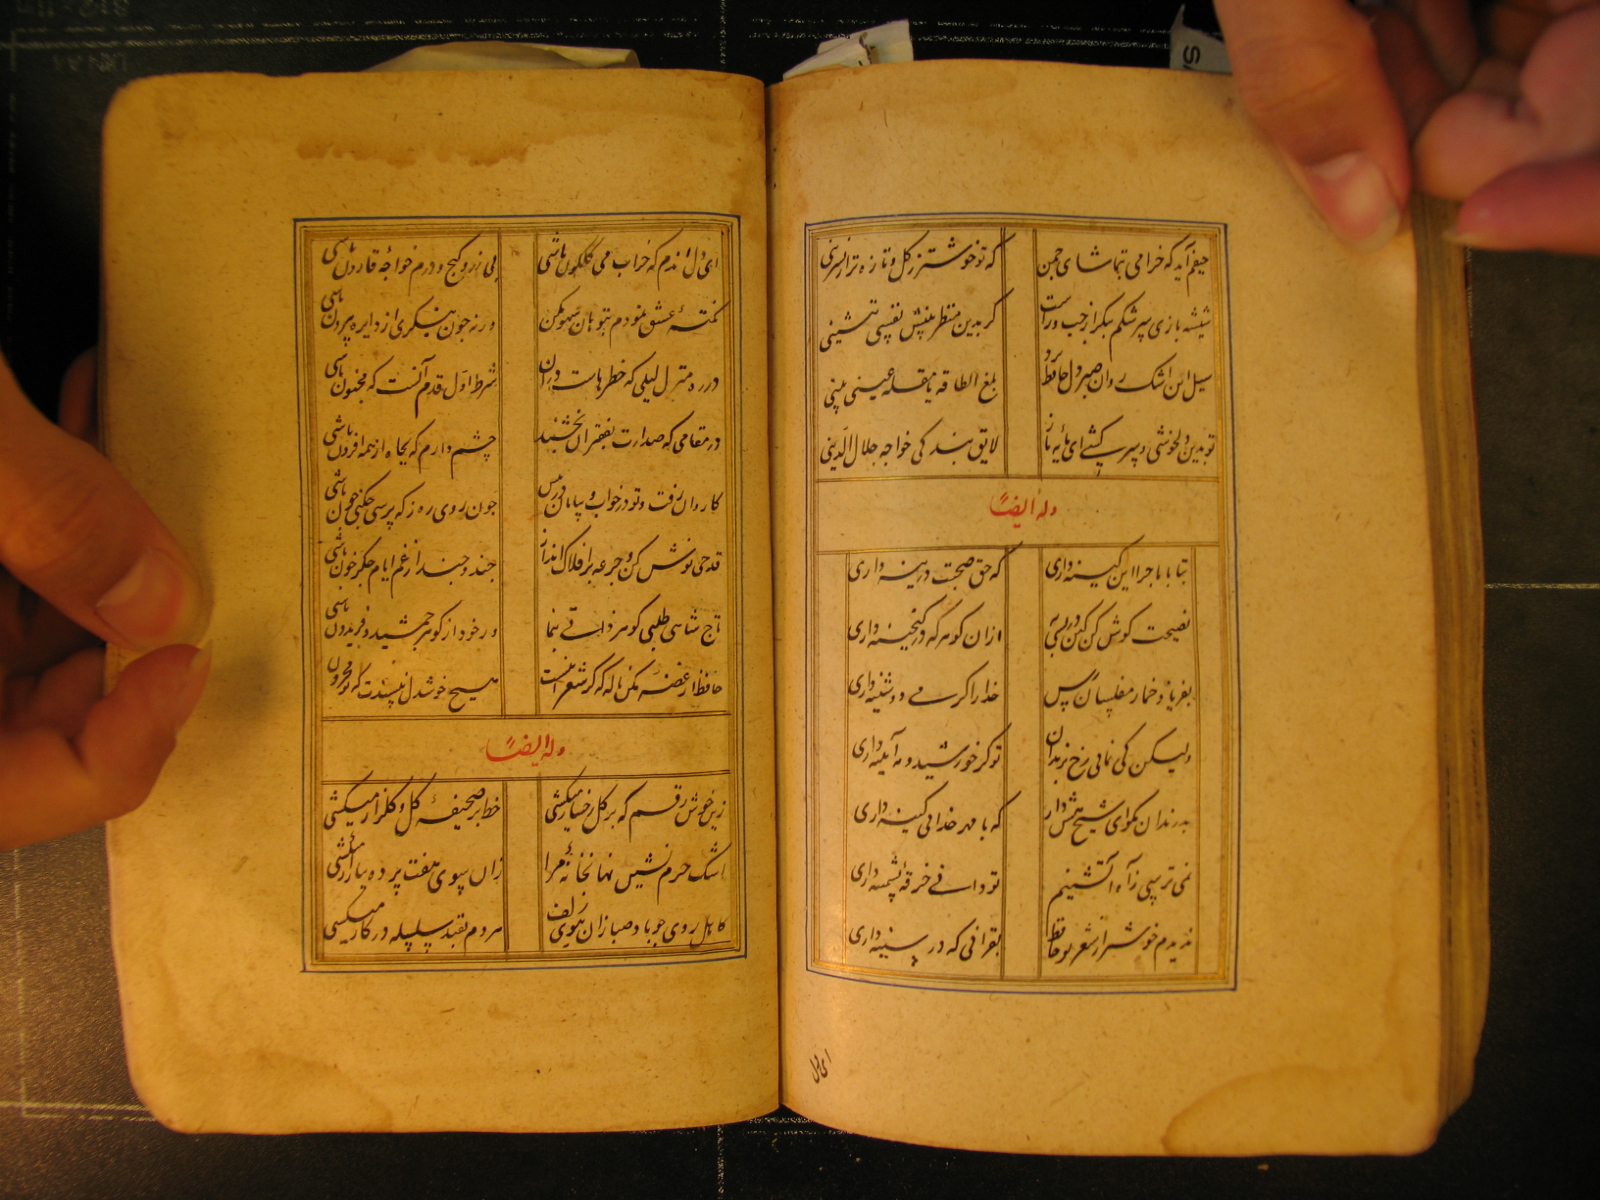 حیفم آید که خرامی بتماشای چمن که تو خوشتر ز گل و تازه تر از نسرینی
شیشه بازی سرشکم بنگر از چپ و راست گر بدین منظر بینش نفسی بنشینی
سیل این اشک روان صبر دل حافظ برد بلغ الطاقه یا مقله عینی بینی
تو بدین دلخوشی و سرکشی ای مایه ناز لایق بندگی خواجه جلال الدینی
وله ایضاً
بتا با ما جرا این کینه داری که حق صحبت درینه داری
نصیحت گوش کن کین در بسی به از ان کوهر که در گنجینه داری
بفریاد خمار مفلسان رس خدا را گر می دوشینه داری
ولیکن کی نمائی رخ برندان تو کز خورشید و مه آیینه داری
بد رندان مگو ای شیخ هش دار که با مهر خدائی کینه داری
نمی ترسی ز آه آتشینم تو دانی خرقه پشمینه داری
ندیدم خوشتر از شعر تو حافظ بقرانی که در سینه داری
ای دل
ای دل اندم که خراب می گلگون باشی بی زر و گنج و درم خواجه قارون باشی
نکته عشق نمودم بتو هان سهو مکن ورنه چون بنگری از دایره بیرون باشی
در ره منزل لیلی که خطرهاست دران شرط اول قدم آنست که مجنون باشی
در مقامی که صدارت بفقیران بخشند چشم دارم که بجاه از همه افزون باشی
کاروان رفت و تو در خواب و بیابان در پیش چون روی ره ز که پرسی چکنی چون باشی
قدحی نوش کن و جرعه بر افلاک انداز چند و چند از غم ایام جگر خون باشی
تاج شاهی طلبی کوهر ذاتی بنما ور خود از کوهر جمشید و فریدون باشی
حافظ از غصه مکن ناله که گر شعر اینست هیچ خوشدل نپسندت که تو محزون
وله ایضاً
زین خوش رقم که بر گل رخسار میکشی خط بر صحیفه گل و گلزار میکشی
اشک حرم نشین نهانخانه مرا زان سوی هفت پرده ببازار میکشی
کاهل روی چو باد صبا را ن ببوی زلف هردم بقید سلسله در کار میکشی